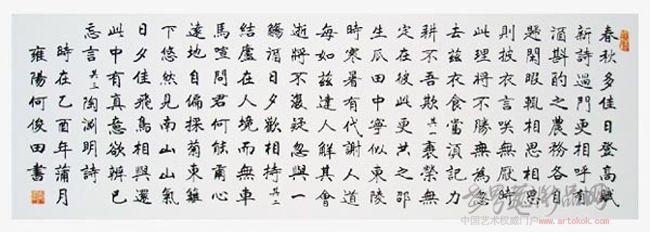 春秋多佳日登高賦
新詩過門更相呼有
酒斟酌之農務各自
歸閑暇輒相思相思
則披衣言咲無厭時
此理將不勝無為忽
去茲衣食當須記力
耕不吾欺其一衰榮無
定在彼此更共之邵
生瓜田中寧似東陵
時寒暑有代謝人道
每如茲達人解其會
逝將不復疑忽與一
觴酒日夕歡相持其二
結廬在人境而無車
馬喧問君何能爾心
遠地自偏採菊東籬
下悠然見南山山氣
日夕佳飛鳥相與還
此中有真意欲辨已
忘言其三陶淵明詩
時在乙酉年蒲月
雍陽何俊田書
中国艺术权威门户 www.artokok.com